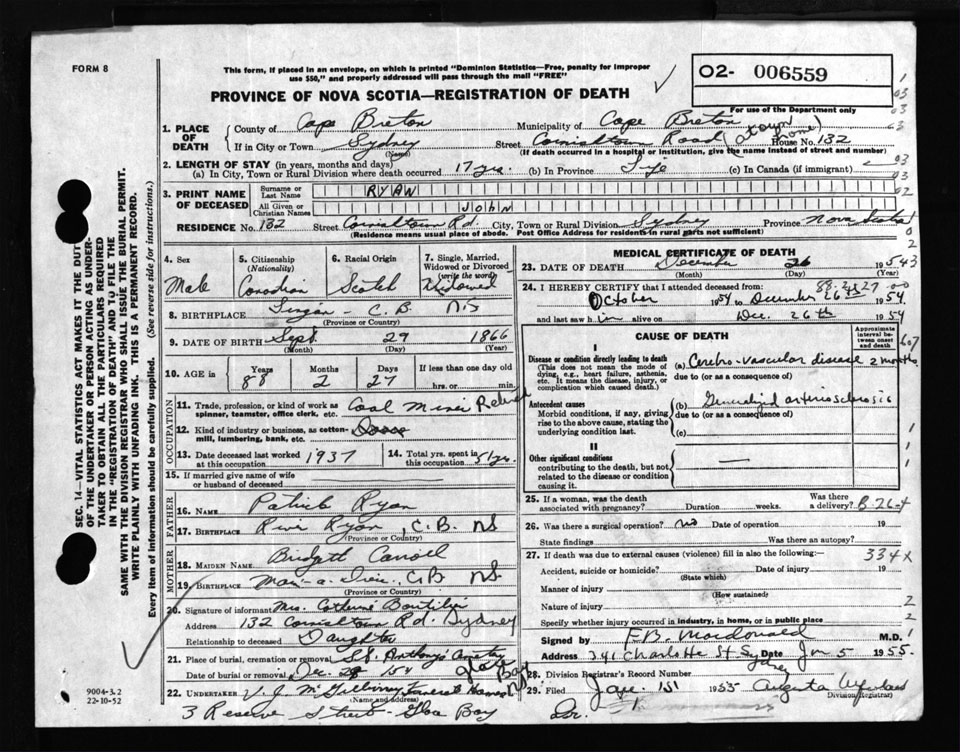 FORM 8
This form, if placed in an envelope, on which is printed "Dominion Statistics—Free, penalty for improper
use $50," and properly addressed will pass through the mail "FREE"
O2- 006559
For use of the Department only
PROVINCE OF NOVA SCOTIA—REGISTRATION OF DEATH
1. PLACE OF DEATH
County of Cape Breton Municipality of Cape Breton
If in City or Town Sydney (Name) Street Road (at own home) House No. 132
(If death occurred in a hospital or institution, give the name instead of street and number)
2. LENGTH OF STAY (in years, months and days)
(a) In City, Town or Rural Division where death occurred 17 yrs. (b) In Province Life (c) In Canada (if immigrant)
3. PRINT NAME OF DECEASED
Surname or Last Name RYAN
All Given or Christian Names JOHN
RESIDENCE No. 132 Street Rd. City, Town or Rural Division Sydney Province Nova Scotia
(Residence means usual place of abode. Post Office Address for residents in rural parts not sufficient)
4. Sex Male
5. Citizenship (Nationality) Canadian
6. Racial Origin Scotch
7. Single, Married, Widowed or Divorced (write the word) Widowed
8. BIRTHPLACE Lingan - C.B. N.S
(Province or Country)
9. DATE OF BIRTH Sept. 29 1866
(Month) (Day) (Year)
10. AGE in Years 88 Months 2 Days 27 If less than one day old
hrs. or min.
OCCUPATION
11. Trade, profession, or kind of work as spinner, teamster, office clerk, etc. Coal Miner Retired
12. Kind of industry or business, as cotton-mill, lumbering, bank, etc.
13. Date deceased last worked at this occupation 1937
14. Total yrs. spent in this occupation 51 yrs.
15. If married give name of wife or husband of deceased
FATHER
16. NAME Patrick Ryan
17. BIRTHPLACE Ryan, C.B. NS
(Province or Country)
MOTHER
18. MAIDEN NAME Bridgett Carroll
19. BIRTHPLACE C.B NS.
(Province or Country)
20. Signature of informant Mrs. Catherine Boutilier
Address 132 Rd. Sydney
Relationship to deceased Daughter
21. Place of burial, cremation or removal St. Anthonys
Date of burial or removal Dec. 28 1954
22. UNDERTAKER V.J. Funeral Home
(Name and address)
3 Reserve Street - Glace Bay
MEDICAL CERTIFICATE OF DEATH
23. DATE OF DEATH December 26 1954
(Month) (Day) (Year)
24. I HEREBY CERTIFY that I attended deceased from:
88-2-27-00
October 1954 to December 26th 1954
and last saw him alive on Dec. 26th 1954
CAUSE OF DEATH
Approximate interval between onset and death
I
Disease or condition directly leading to death
(This does not mean the mode of dying, e.g., heart failure, asthenia, etc. It means the disease, injury, or complication which caused death.)
(a) Cerebro-vascular disease 2 months
due to (or as a consequence of)
Antecedent causes
Morbid conditions, if any, giving rise to the above cause, stating the underlying condition last.
(b) Generalized arteriosclerosis
due to (or as a consequence of)
(c)
II
Other significant conditions
contributing to the death, but not related to the disease or condition causing it.
25. If a woman, was the death associated with pregnancy? Duration weeks. Was there a delivery? B-26-4
26. Was there a surgical operation? no Date of operation 19
State findings Was there an autopsy?
27. If death was due to external causes (violence) fill in also the following:— 334X
Accident, suicide or homicide? (State which) Date of injury 19
Manner of injury (How sustained)
Nature of injury
Specify whether injury occurred in industry, in home, or in public place
Signed by F.B. Macdonald M.D.
Address 341 Charlotte St Sydney Date Jan 5 1955.
28. Division Registrar's Record Number
29. Filed 1955 Augusta
(Division Registrar)
SEC. 14—VITAL STATISTICS ACT MAKES IT THE DUTY
OF THE UNDERTAKER OR PERSON ACTING AS UNDER-
TAKER TO OBTAIN ALL THE PARTICULARS REQUIRED
IN THE "REGISTRATION OF DEATH" AND TO FILE THE
SAME WITH THE DIVISION REGISTRAR WHO SHALL ISSUE THE BURIAL PERMIT.
WRITE PLAINLY WITH UNFADING INK. THIS IS A PERMANENT RECORD.
Every item of information should be carefully supplied. (See reverse side for instructions.)
9004-3.2
22-10-52